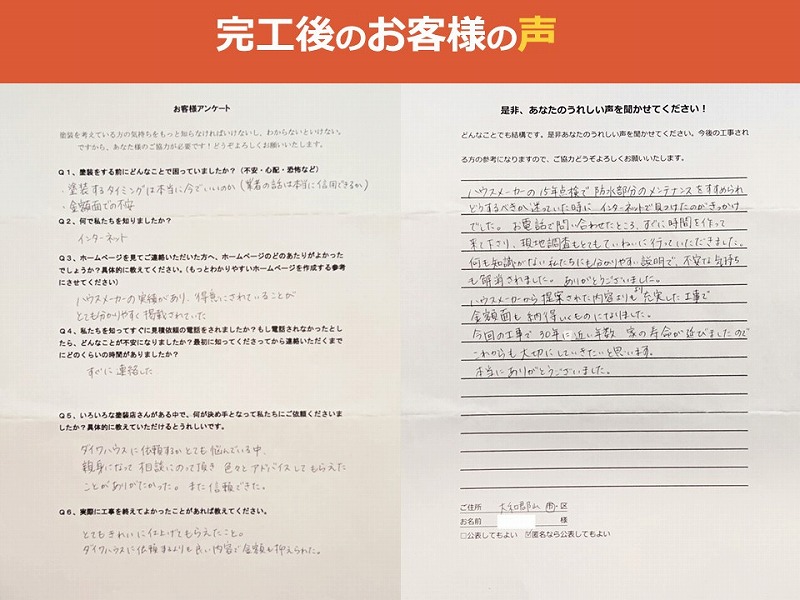 完工後のお客様の声
お客様アンケート
塗装を考えている方の気持ちをもっと知らなければいけないし、わからないといけない。
ですから、あなた様のご協力が必要です！どうぞよろしくお願いいたします。
Q1、塗装をする前にどんなことで困っていましたか？（不安・心配・恐怖など）
・塗装するタイミングは本当に今でいいのか（業者の話は本当に信用できるか）
・金額面での不安
Q2、何で私たちを知りましたか？
インターネット
Q3、ホームページを見てご連絡いただいた方へ、ホームページのどのあたりがよかった
でしょうか？具体的に教えてください。（もっとわかりやすいホームページを作成する参考
にさせてください）
ハウスメーカーの実績があり、得意にされていることが
とても分かりやすく掲載されていた
Q4、私たちを知ってすぐに見積依頼の電話をされましたか？もし電話されなかったとし
たら、どんなことが不安になりましたか？最初に知ってくださってから連絡いただくまで
にどのくらいの時間がありましたか？
すぐに連絡した
Q5、いろいろな塗装店さんがある中で、何が決め手となって私たちにご依頼くださいま
したか？具体的に教えていただけるとうれしいです。
ダイワハウスに依頼するかとても悩んでいる中、
親身になって相談にのって頂き 色々とアドバイスしてもらえた
ことがありがたかった。また信頼できた。
Q6、実際に工事を終えてよかったことがあれば教えてください。
とてもきれいに仕上げてもらえたこと。
ダイワハウスに依頼するよりも良い内容で金額も抑えられた。
是非、あなたのうれしい声を聞かせてください！
どんなことでも結構です。是非あなたのうれしい声を聞かせてください。今後の工事され
る方の参考になりますので、ご協力どうぞよろしくお願いいたします。
ハウスメーカーの15年点検で防水部分のメンテナンスをすすめられ
どうするべきか迷っていた時に インターネットで見つけたのがきっかけ
でした。お電話で問い合わせたところ、すぐに時間を作って
来て下さり、現地調査もとてもていねいに行っていただきました。
何も知識がない私たちにも分かりやすい説明で、不安な気持ち
も解消されました。ありがとうございました。
ハウスメーカーから提案された内容よりも充実した工事で
金額面も納得いくものになりました。
今回の工事で30年近い年数 家の寿命が延びましたので
これからも大切にしていきたいと思います。
本当にありがとうございました。
ご住所 大和郡山 市・区
お名前 様
□公表してもよい ☑匿名なら公表してもよい